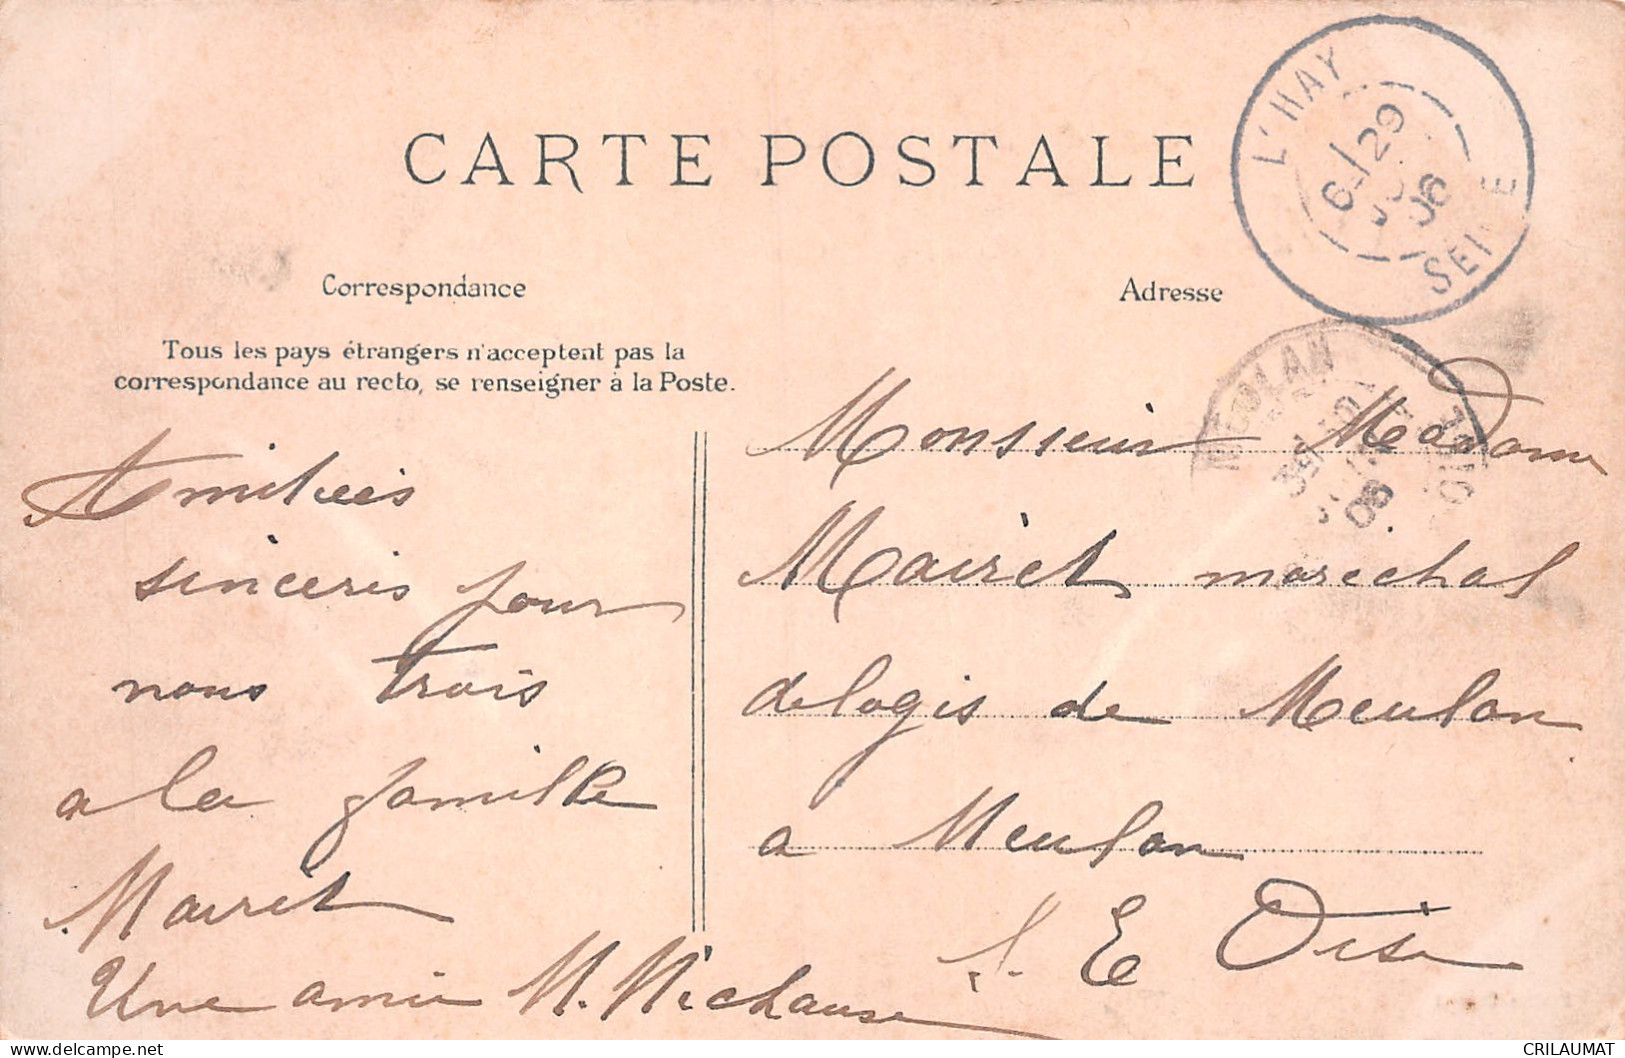 CARTE POSTALE
L'HAY
6-/29
06
SEINE
Correspondance
Adresse
Tous les pays étrangers n'acceptent pas la
correspondance au recto, se renseigner à la Poste.
MEULAN
06
Amitiés
sincèris pour
nous trois
a la famille
Mairet
Une amie M. Michause
Monsieur Madame
Mairet marechal
delogis de Meulan
a Meulan
S. E Oise
CRILAUMAT